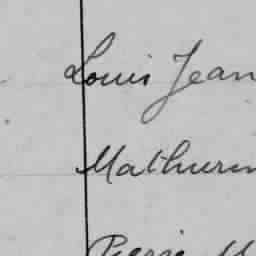 Louis Jean
Mathurin
Pierre M